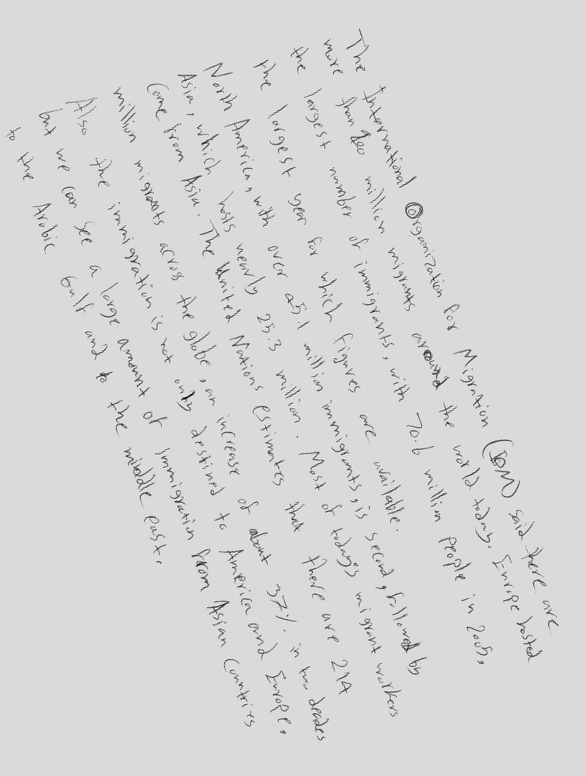 The International Organization for Migration (IOM) said there are
more than 200 million migrants around the world today. Europe hosted
the largest number of immigrants, with 70.6 million people in 2005,
the largest year for which figures are available.
North America, with over 45.1 million immigrants, is second, followed by
Asia, which hosts nearly 25.3 million. Most of todays migrant workers
come from Asia. The United Nations estimates that there are 214
million migrants across the globe, an increase of about 37% in two decades
Also the immigration is not only destined to America and Europe,
but we can see a large amount of Immigration from Asian Countries
to the Arabic Gulf and to the middle east.